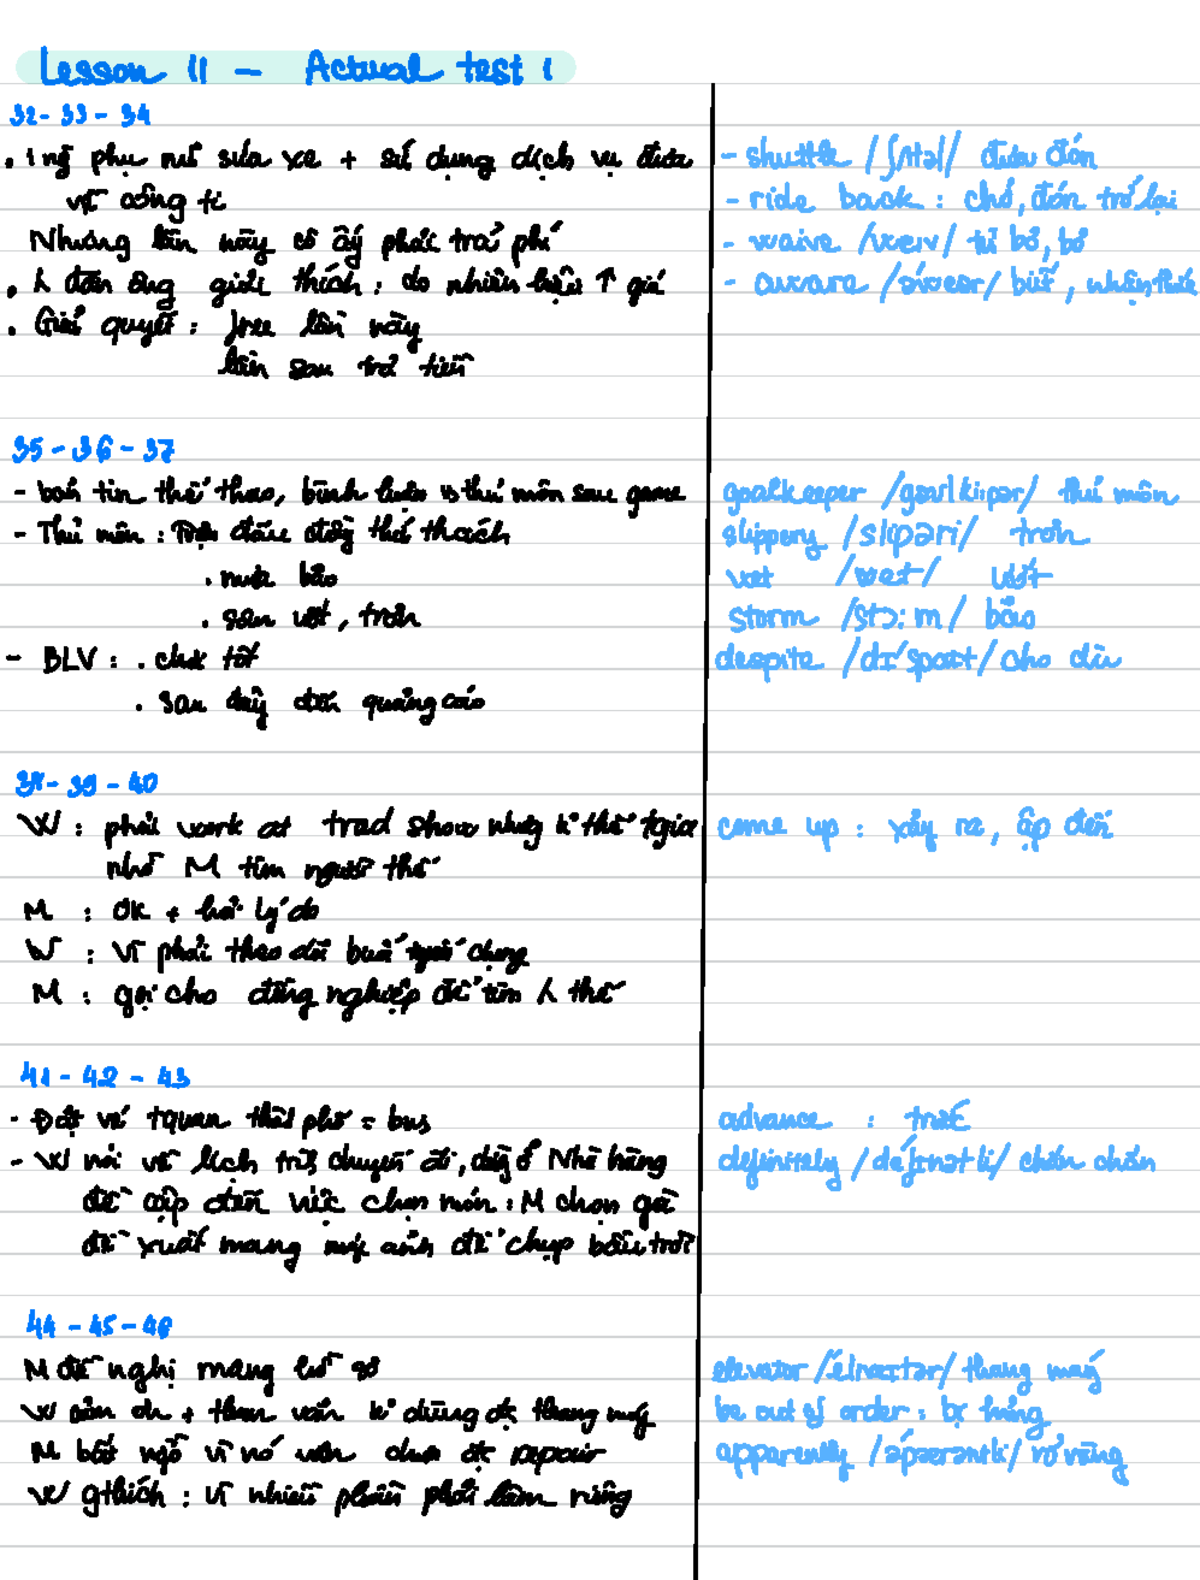 Lesson 11 - Actual test 1
32 - 33 - 34
. 1 ng phụ nữ sửa xe + sử dụng dịch vụ đưa
về công ti
Nhưng lần này cô ấy phải trả phí
. đàn ông giải thích : do nhiên liệu ↑ giá
. Giải quyết : free lần này
lần sau trả tiền
- shuttle /ʃʌtəl/ đưa đón
- ride back : chở, đón trở lại
- waive /weiv/ từ bỏ, bỏ
- aware /əˈweər/ biết, nhận thức
35 - 36 - 37
- bản tin thể thao, bình luận thủ môn sau game
- Thủ môn : Trận đấu đầy thử thách
. mưa bão
. sân ướt, trơn
- BLV : . chơi tốt
. sau đây đến quảng cáo
goalkeeper /ˈgəʊlkiːpər/ thủ môn
slippery /slɪpəri/ trơn
wet /wet/ ướt
storm /stɔ:m/ bão
despite /dɪˈspaɪt/ cho dù
38 - 39 - 40
W : phải work at trad show nhưng k thể tgia
nhờ M tìm người thế
M : OK + hỏi lý do
W : vì phải theo dõi buổi chụng
M : gọi cho đồng nghiệp để tìm thế
come up : xảy ra, ập đến
41 - 42 - 43
- Đặt vé tquan thành phố = bus
- W nói về lịch trình chuyến đi, dừng ở Nhà hàng
đề cập đến việc chọn món : M chọn gà
đề xuất mang máy ảnh để chụp bầu trời
advance : trước
definitely /ˈdefɪnətli/ chắn chắn
44 - 45 - 46
M đề nghị mang
W cảm ơn + than vãn k dùng đc thang máy
M bất ngờ vì nó vẫn chưa đc repair
W gthích : vì nhiều phần phải làm riêng
elevator /ˈelɪveɪtər/ thang máy
be out of order : bị hỏng
apparently /əˈpærəntli/ rõ ràng